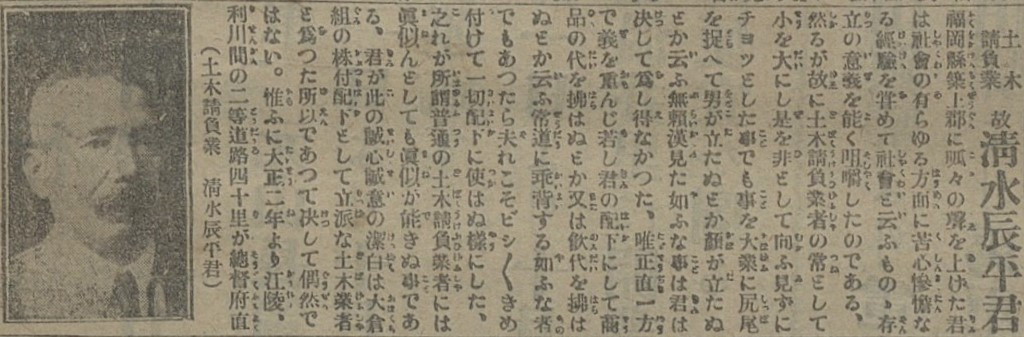 土木
請負業
故
淸水辰平君
福岡縣築上郡に呱々の聲を上げた君
は社會の有らゆる方面に苦心慘憺な
る經驗を甞めて社會と云ふもの、存
立の意義を能く咀嚼したのである、
然るが故に土木請負業者の常として
小を大にし是を非として向ふ見ずに
チヨツとした事でも事を大業に尻尾
を捉へて男が立たぬとか顏が立たぬ
とか云ふ無賴漢見た如ふな事は君は
決して爲し得なかつた、唯正直一方
で義を重んじ若し君の配下にして商
品の代を拂はぬとか又は飮代を拂は
ぬとか云ふ常道に乖背する如ふな者
でもあつたら夫れこそビシ〱きめ
付けて一切配下に使はぬ樣にした、
之れが所謂普通の土木請負業者には
眞似んとしても眞似が能きぬ事であ
る、君が此の誠心誠意の潔白は大倉
組の株付配下として立派な土木業者
と爲つた所以であつて决して偶然で
はない。惟ふに大正二年より江陵、
利川間の二等道路四十里が總督府直
(土木請負業　淸水辰平君)